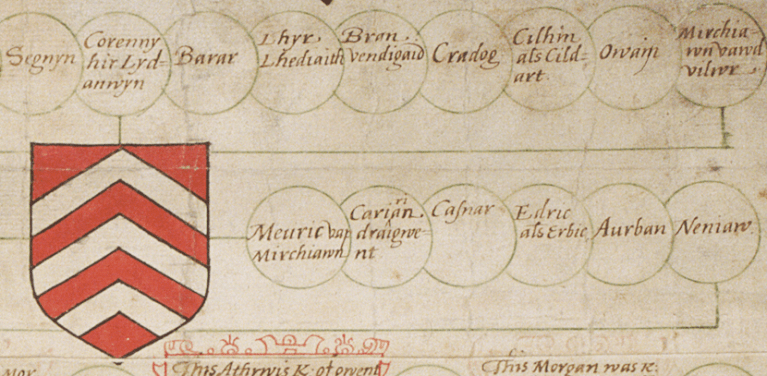 Segnyn
Corenny
hir Lyd=
anwyn
Barar
Lhyr.
Lhediaith
Bran.
vendigaid
Cradog
Cilhin
als Cild=
art.
Owain
Mirchia=
wn vawd
vilwr.
Meuric vap
Mirchiawn
Carian. ri
draigwe=
nt
Casnar
Edric
als Erbic
Aurban
Neniaw.
This Athrwis K. of gwent
This Morgan was K: